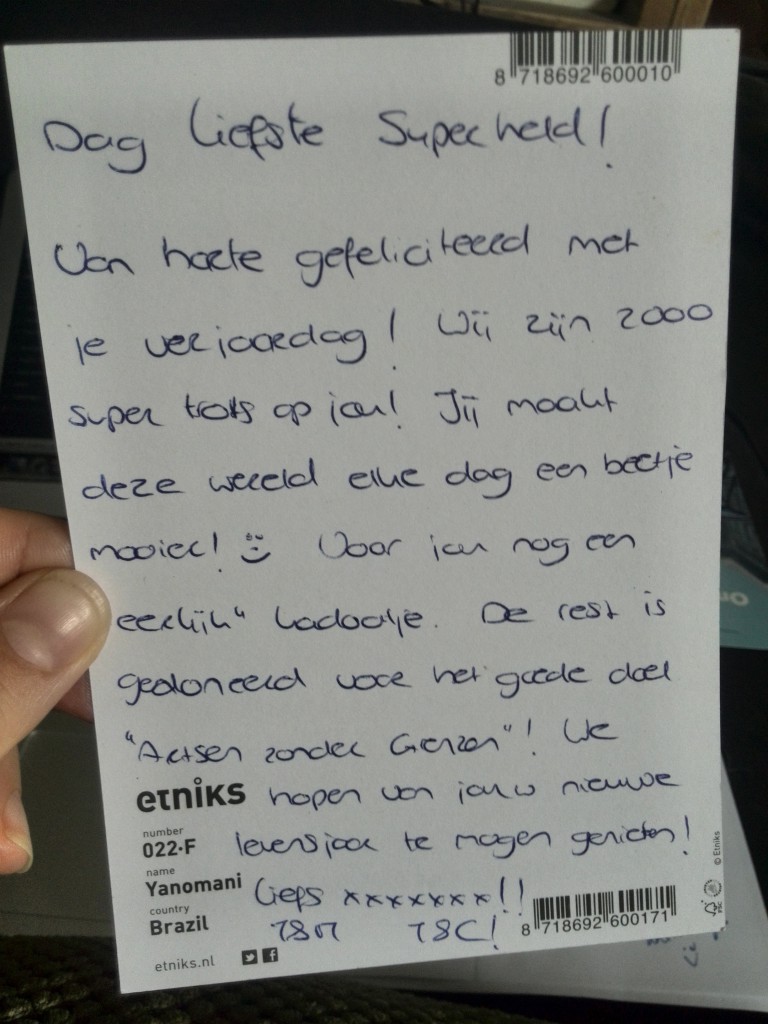 8 718692 600010
Dag liefste Superheld!
Van harte gefeliciteerd met
je verjaardag! Wij zijn zooo
super trots op jou! Jij maakt
deze wereld elke dag een beetje
mooier! Voor jou nog een
eerlijk" kadootje. De rest is
gedoneerd voor het goede doel
"Artsen zonder Grenzen"! We
etniks hopen van jouw nieuwe
number
022·F levensjaar te mogen genieten!
name
Yanomani Liefs xxxxxxx!!
country
Brazil
8 718692 600171
etniks.nl
© Etniks